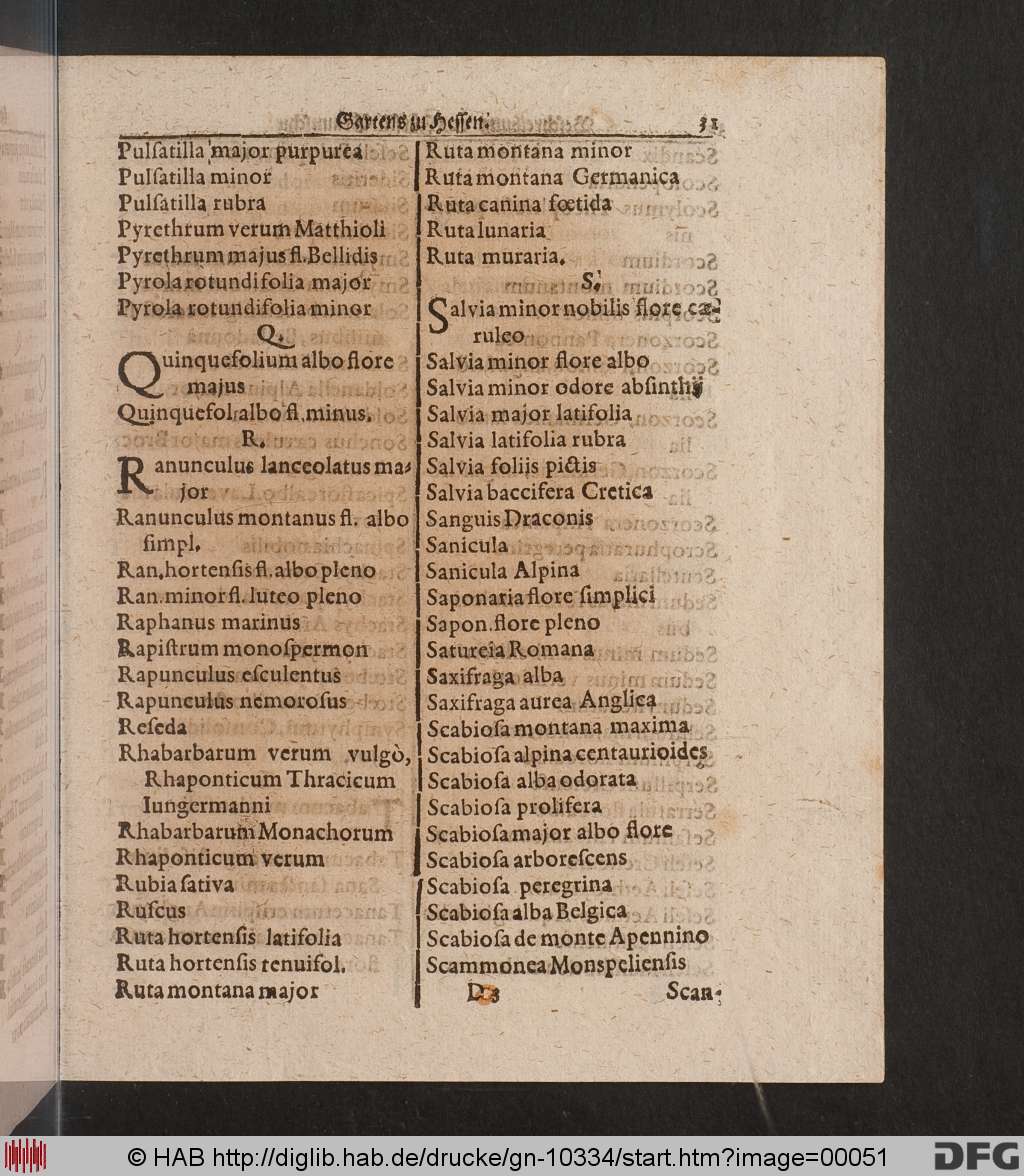 Gartens zu Hessen. 31
Pulſatilla major purpurea
Pulſatilla minor
Pulſatilla rubra
Pyrethrum verum Matthioli
Pyrethrum majus fl. Bellidis
Pyrola rotundifolia major
Pyrola rotundifolia minor
Q.
Quinquefolium albo flore
majus
Quinquefol. albo fl. minus.
R.
Ranunculus lanceolatus ma-
jor
Ranunculus montanus fl. albo
ſimpl.
Ran. hortenſis fl. albo pleno
Ran. minor fl. luteo pleno
Raphanus marinus
Rapiſtrum monoſpermon
Rapunculus eſculentus
Rapunculus nemoroſus
Reſeda
Rhabarbarum verum vulgò,
Rhaponticum Thracicum
Iungermanni
Rhabarbarum Monachorum
Rhaponticum verum
Rubia ſativa
Ruſcus
Ruta hortenſis latifolia
Ruta hortenſis tenuifol.
Ruta montana major
Ruta montana minor
Ruta montana Germanica
Ruta canina fœtida
Ruta lunaria
Ruta muraria.
S.
Salvia minor nobilis flore cæ-
ruleo
Salvia minor flore albo
Salvia minor odore abſinthij
Salvia major latifolia
Salvia latifolia rubra
Salvia foliis pictis
Salvia baccifera Cretica
Sanguis Draconis
Sanicula
Sanicula Alpina
Saponaria flore ſimplici
Sapon. flore pleno
Satureia Romana
Saxifraga alba
Saxifraga aurea Anglica
Scabioſa montana maxima
Scabioſa alpina centaurioides
Scabioſa alba odorata
Scabioſa prolifera
Scabioſa major albo flore
Scabioſa arboreſcens
Scabioſa peregrina
Scabioſa alba Belgica
Scabioſa de monte Apennino
Scammonea Monspelienſis
D 3 Scan-
© HAB http://diglib.hab.de/drucke/gn-10334/start.htm?image=00051
DFG